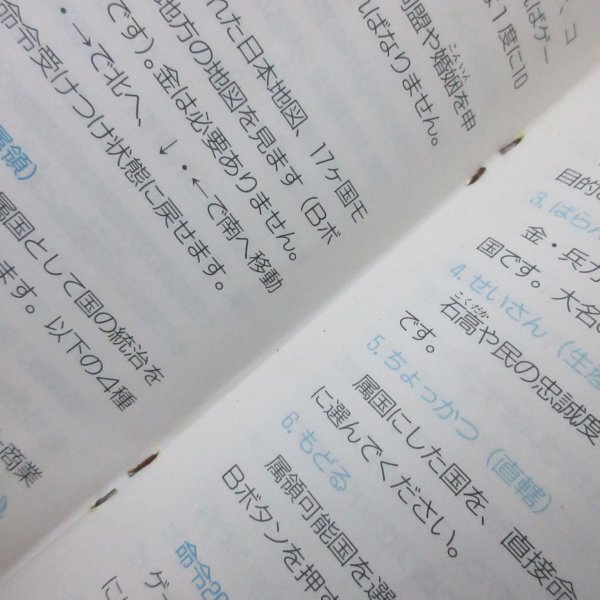 、コ
ばゲー
ょ1度に10
同盟や婚姻を申
こんいん
ればなりません。
れた日本地図、17ヶ国モ
地方の地図を見ます（Bボ
です)。金は必要ありません。
・→で北へ、↓・←で南へ移動
命令受けつけ状態に戻せます。
属領）
属国として国の統治を
ます。以下の4種
商業
目的の
3.ばらん
金・兵力
国です。大名の
4.せいさん（生産
こくだか
石高や民の忠誠度
です。
5.ちょっかつ（直轄）
属国にした国を、直接命
に選んでください。
6.もどる
属領可能国を選
Bボタンを押す
命令20
ゲー
に